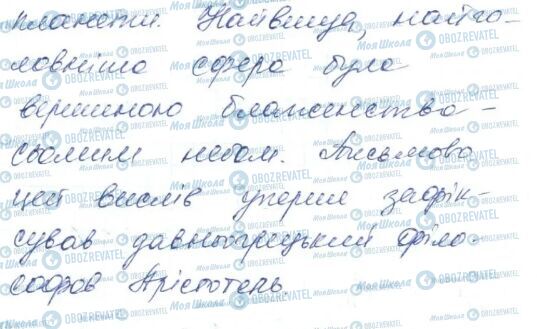 планети. Найвища, найго-
ловніша сфера була
вершиною блаженства -
сьомим небом. Письмово
цей вислів уперше зафік-
сував давньогрецький філо-
софов Арістотель.